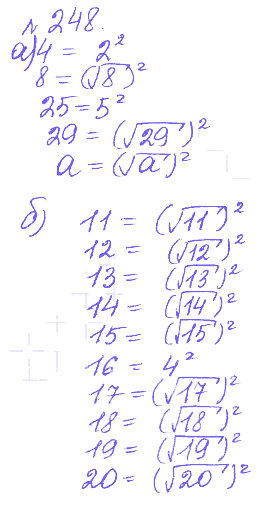 № 248.
а) 4 = 2²
8 = (√8)²
25 = 5²
29 = (√29)²
a = (√a)²
б) 11 = (√11)²
12 = (√12)²
13 = (√13)²
14 = (√14)²
15 = (√15)²
16 = 4²
17 = (√17)²
18 = (√18)²
19 = (√19)²
20 = (√20)²